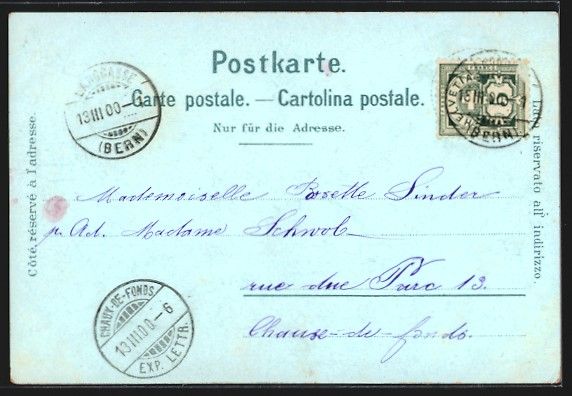 Postkarte.
Carte postale. — Cartolina postale.
Nur für die Adresse.
Côté réservé à l'adresse.
Lato riservato all' indirizzo.
LÄNGGASSE
13 III 00
(BERN)
HELVETIA
13 III 00
(BERN)
Mademoiselle Rosette Linder
p. Ad. Madame Schwob
rue due Parc 13.
Chause-de-fonds.
CHAUX-DE-FONDS
13 III 00.-6
EXP. LETTR.